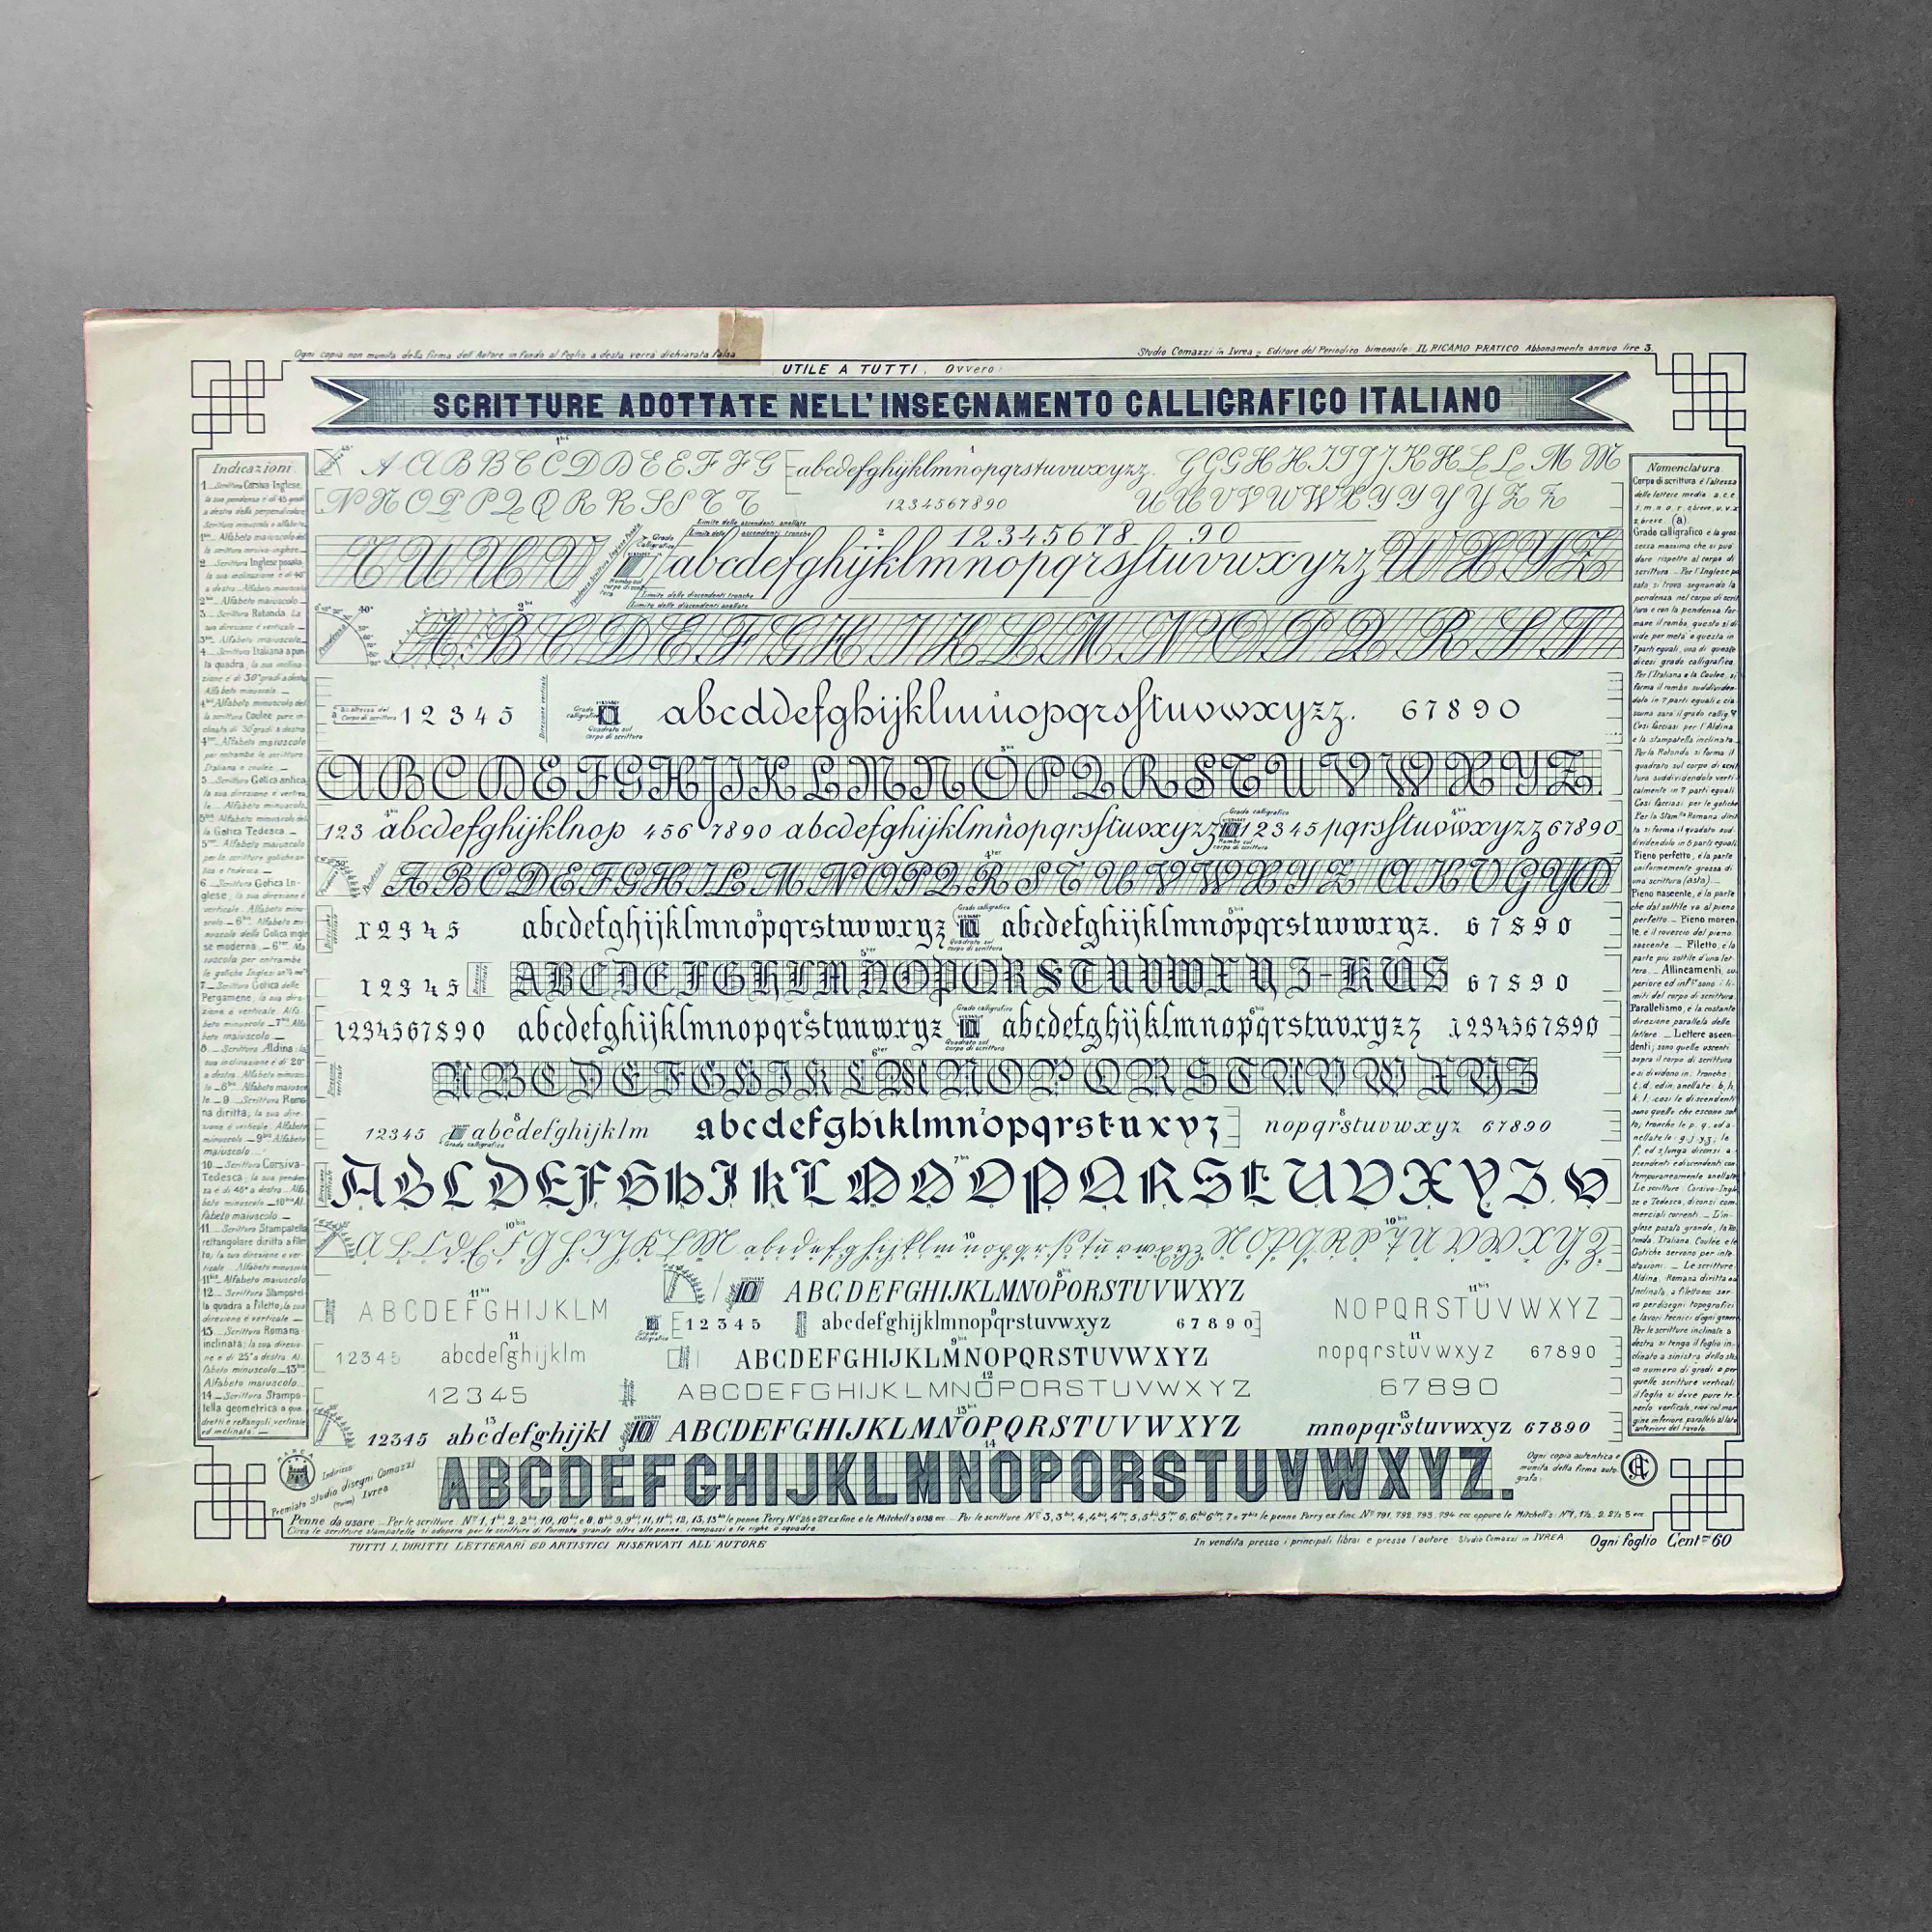 Ogni copia non munita della firma dell'Autore in fondo al foglio a desta verrà dichiarata falsa
Studio Comazzi in Ivrea - Editore del Periodico bimensile: IL RICAMO PRATICO Abbonamento annuo lire 3.
UTILE A TUTTI, Ovvero:
SCRITTURE ADOTTATE NELL'INSEGNAMENTO CALLIGRAFICO ITALIANO
Indicazioni.
1 _ Scrittura Corsiva Inglese,
la sua pendenza è di 45 gradi
a destra della perpendicolare
Scrittura minuscola o alfabeto.
1bis_ Alfabeto maiuscolo del
la scrittura corsiva-inglese._
2 _ Scrittura Inglese posata,
la sua inclinazione è di 40°
a destra _ Alfabeto minuscolo
2bis_ Alfabeto maiuscolo _
3 _ Scrittura Rotonda. La
sua direzione è verticale _
3bis_ Alfabeto maiuscolo_
4 _ Scrittura Italiana a pun
ta quadra, la sua inclina-
zione è di 30° gradi a destra
Alfabeto minuscolo. _
4bis Alfabeto minuscolo del
la scrittura Coulée pure in-
clinata di 30 gradi a destra
4ter_ Alfabeto maiuscolo
per entrambe le scritture
Italiana e coulée. _
5 _ Scrittura Gotica antica,
la sua direzione è vertica
le _ Alfabeto minuscolo.
5bis_ Alfabeto minuscolo del
la Gotica Tedesca. _
5ter_ Alfabeto maiuscolo
per le scritture gotiche an-
tica e tedesca _
6 _ Scrittura Gotica In-
glese, la sua direzione è
verticale _ Alfabeto minu-
scolo _ 6bis Alfabeto mi-
nuscolo della Gotica ingle
se moderna. _ 6ter Ma
iuscola per entrambe
le gotiche Inglesi
7 _ Scrittura Gotica delle
Pergamene, la sua dire-
zione è verticale. Alfa-
beto minuscolo _ 7bis Alfa
beto maiuscolo. _
8 _ Scrittura Aldina, la
sua inclinazione è di 20°
a destra. Alfabeto minusco
lo _ 8bis Alfabeto maiusco
lo _ 9 _ Scrittura Roma-
na diritta, la sua dire-
zione è verticale. Alfabeto
minuscolo _ 9bis Alfabeto
maiuscolo. _
10 _ Scrittura Corsiva-
Tedesca, la sua penden-
za è di 45° a destra _ Alfa-
beto minuscolo _ 10bis Al
fabeto maiuscolo _
11 _ Scrittura Stampatella
rettangolare diritta a filet
to, la sua direzione è ver-
ticale _ Alfabeto minuscolo
11bis_ Alfabeto maiuscolo
12 _ Scrittura Stampatel-
la quadra a filetto, la sua
direzione è verticale _
13 _ Scrittura Romana-
inclinata, la sua direzio-
ne è di 25° a destra. Al-
fabeto minuscolo _ 13bis
Alfabeto maiuscolo_
14 _ Scrittura Stampa-
tella geometrica a qua-
dretti e rettangoli, verticale
ed inclinata. _
1bis
A A B B C C D D E E F F G
1
abcdefghijklmnopqrstuvwxyzz.
G G G H H I I J J K K L L M M
N N O P P Q Q R R S S T T
1234567890
U U V V W W X Y Y Y Y Z Z
Limite delle ascendenti anellate
Limite delle ascendenti tronche
Grado Calligrafico
T U U V
2
1 2 3 4 5 6 7 8 9 0
abcdefghijklmnopqrsstuvwxyzz
W X Y Z
Limite delle discendenti tronche
Limite delle discendenti anellate
2bis
Pendenza
A B C D E F G H I K L M N O P Q R S T
a altezza del Corpo di scrittura
1 2 3 4 5
Direzione verticale
Grado calligrafico
Quadrato sul corpo di scrittura
3
abcddefghijklmnopqrsstuvwxyzz.
6 7 8 9 0
3bis
A B C D E F G H J I K L M N O P Q R S T U V W X Y Z.
123
4bis
abcdefghijklnop
456 7890
4
abcdefghijklmnopqrsstuvxyzz
Grado calligrafico
Rombo sul corpo di scrittura
12345
4bis
pqrsstuvwxyzz
67890
Pendenza
4ter
A B C D E F G H I L M N O P Q R S T U V W X Y Z A K V G Y D
Direzione verticale
1 2 3 4 5
5
abcdefghijklmnopqrstuvwxyz
Grado calligrafico
Quadrato sul corpo di scrittura
5bis
abcdefghijklmnopqrstuvwxyz.
6 7 8 9 0
1 2 3 4 5
Direzione verticale
5ter
A B C D E F G H I L M N O P Q R S T U V W X Y Z - K U S
6 7 8 9 0
1234567890
6
abcdefghijklmnopqrstuvwxyz
Grado calligrafico
Quadrato sul corpo di scrittura
6bis
abcdefghijklmnopqrstuvxyzz
1234567890
Direzione verticale
6ter
A B C D E F G H I K L M N O P Q R S T U V W X Y Z
12345
Grado calligrafico
8
abcdefghijklm
7
abcdefghiklmnopqrstuxyz
8
nopqrstuvwxyz
67890
Direzione verticale
7bis
A B C D E F G H I K L M N O P Q R S T U V X Y Z. O
10bis
A B C D E F G H I J K L M
10
abcdefghijklmnopqrsstuvwxyz
10bis
N O P Q R S T U V W X Y Z
8bis
ABCDEFGHIJKLMNOPQRSTUVWXYZ
11bis
A B C D E F G H I J K L M
Grado Calligrafico
1 2 3 4 5
9
abcdefghijklmnopqrstuvwxyz
6 7 8 9 0
11bis
N O P Q R S T U V W X Y Z
12345
11
abcdefghijklm
9bis
ABCDEFGHIJKLMNOPQRSTUVWXYZ
11
nopqrstuvwxyz
67890
12345
12
ABCDEFGHIJKLMNOPQRSTUVWXYZ
67890
12345
13
abcdefghijkl
13bis
ABCDEFGHIJKLMNOPQRSTUVWXYZ
13
mnopqrstuvwxyz
67890
14
ABCDEFGHIJKLMNOPQRSTUVWXYZ.
Nomenclatura
Corpo di scrittura è l'altezza
delle lettere medie: a, c, e,
i, m, n, o, r, s breve, u, v, x
z breve. (a)
Grado calligrafico è la gros
sezza massima che si può
dare rispetto al corpo di
scrittura. _ Per l'Inglese po
sata, si trova segnando la
pendenza nel corpo di scrit
tura e con la pendenza for-
mare il rombo, questo si di
vide per metà e questa in
7 parti eguali, una di queste
dicesi grado calligrafico.
Per l'Italiana e la Coulée, si
forma il rombo suddividen-
dolo in 7 parti eguali e cia
scuna sarà il grado callig.co
Così facciasi per l'Aldina
e la stampatella inclinata.
Per la Rotonda si forma il
quadrato sul corpo di scrit
tura suddividendolo verti-
calmente in 7 parti eguali.
Così facciasi per le gotiche
Per la Stam.lla Romana dirit
ta si forma il quadrato sud-
dividendolo in 5 parti eguali.
Pieno perfetto, è la parte
uniformemente grossa di
una scrittura (asta). _
Pieno nascente, è la parte
che dal sottile va al pieno
perfetto _ Pieno moren
te, è il rovescio del pieno
nascente. _ Filetto, è la
parte più sottile d'una let-
tera. _ Allineamenti, su-
periore ed inf.re sono i li-
miti del corpo di scrittura
Parallelismo, è la costante
direzione parallela delle
lettere. _ Lettere ascen-
denti, sono quelle uscenti
sopra il corpo di scrittura
e si dividono in: tronche:
t, d, ed in anellate: b, h,
k, l, così le discendenti
sono quelle che escono sot
to; tronche le p, q, ed a-
nellate le: g, j, y, z, le
f, ed s lunga diconsi a-
scendenti e discendenti con
temporaneamente anellate
Le scritture: Corsivo-Ingle
se e Tedesca, diconsi com-
merciali correnti. _ L'in-
glese posata grande, la Ro
tonda, Italiana, Coulée e le
Gotiche servono per inte-
stazioni. _ Le scritture:
Aldina, Romana diritta ed
Inclinata, a filetto ecc. ser-
vo per disegni topografici
e lavori tecnici d'ogni genere
Per le scritture inclinate a
destra si tenga il foglio in-
clinato a sinistra dello stes
so numero di gradi e per
quelle scritture verticali
il foglio si deve pure te-
nerlo verticale, cioè col mar
gine inferiore parallelo al lato
anteriore del tavolo.
MARCA
Indirizzo:
Premiato Studio disegni Comazzi
(Torino) Ivrea
Ogni copia autentica è
munita della firma auto-
grafa:
Penne da usare _ Per le scritture: Ni 1, 1bis, 2, 2bis, 10, 10bis e 8, 8bis, 9, 9bis, 11, 11bis, 12, 13, 13bis le penne Perry N° 26 e 27 ex fine e le Mitchell's 0138 ecc _ Per le scritture Ni 3, 3bis, 4, 4bis, 4ter, 5, 5bis, 5ter 6, 6bis 6ter, 7 e 7bis le penne Perry ex fine, Ni 791, 792, 793, 794 ecc oppure le Mitchell's: Ni 1, 1½, 2, 2½ 3 ecc
Circa le scritture stampatelle si adopera per le scritture di formato grande oltre alle penne, i compassi e le righe o squadre.
TUTTI I DIRITTI LETTERARI ED ARTISTICI RISERVATI ALL'AUTORE
In vendita presso i principali librai e presso l'autore: Studio Comazzi in IVREA
Ogni foglio Cent.mi 60